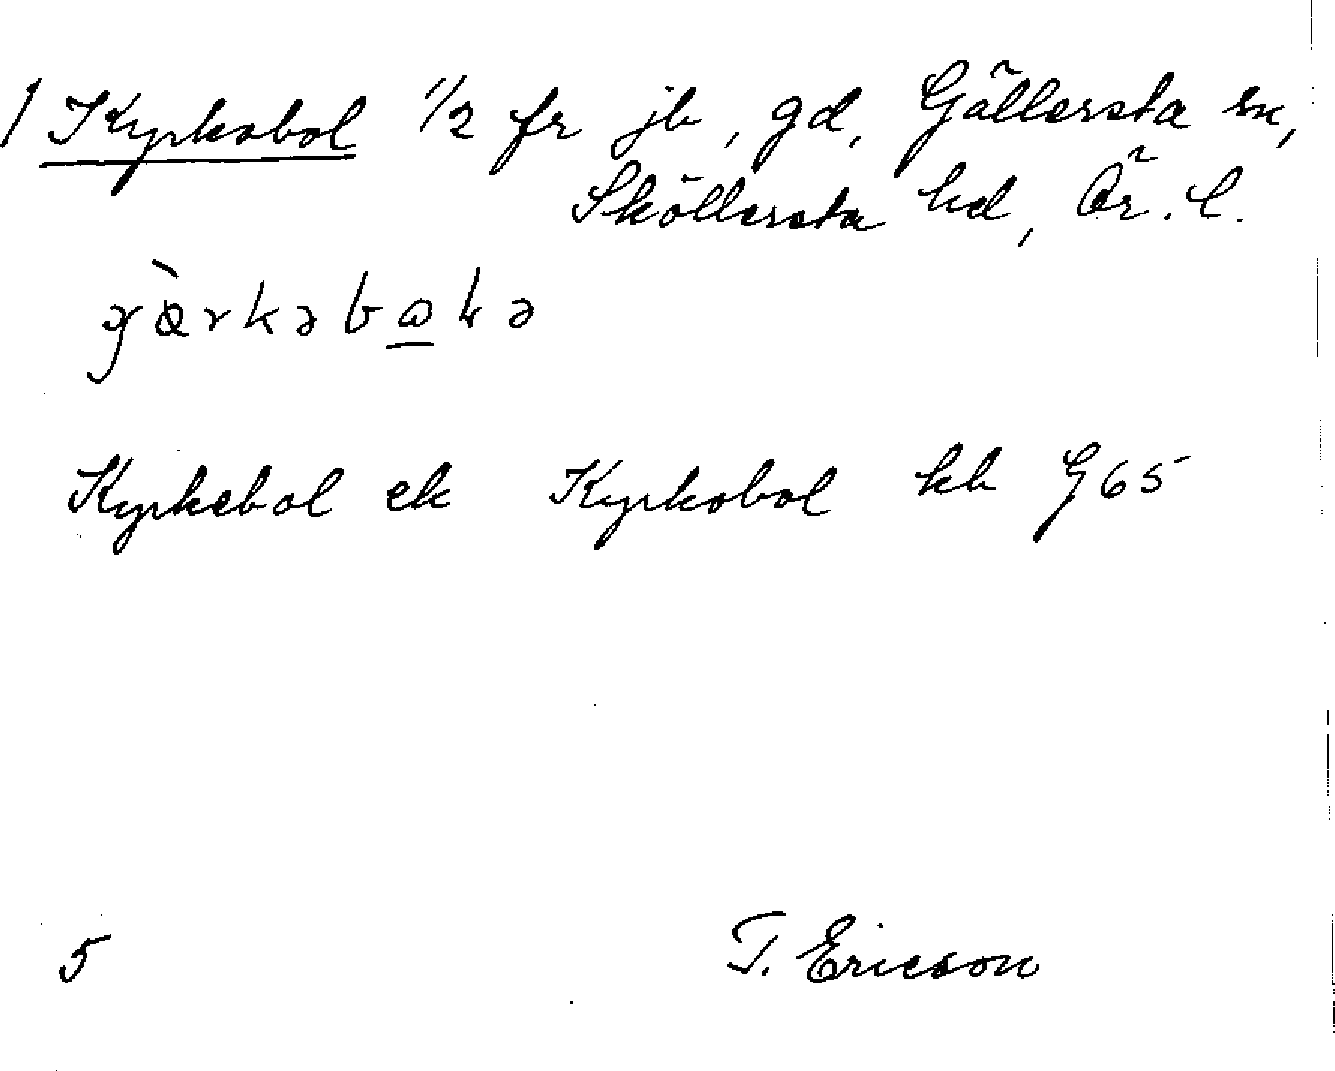 1 Kyrkobol 1/2 fr jb, gd, Gällersta sn,
Sköllersta hd, Ör. l.
Kyrkebol ek Kyrkobol kb G65
5 T. Ericson